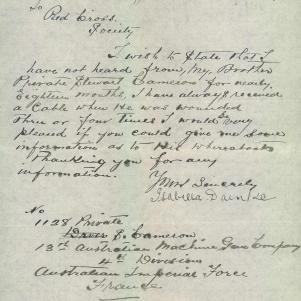 To
Red Cross.
Society
I wish to state that I
have not heard from, My, Brother
Private Stewart Cameron for nearly
Eighteen months, I have always received
a Cable when He was wounded
thre or four times I would be very
pleased if you could give me some
information as to His Whereabouts
Thanking you for any
information.
Yours Sincerely
Isabella
No
1128, Private
Cameron
13th Australian Machine Gun Company
4th Division
Australian Imperial Force
France